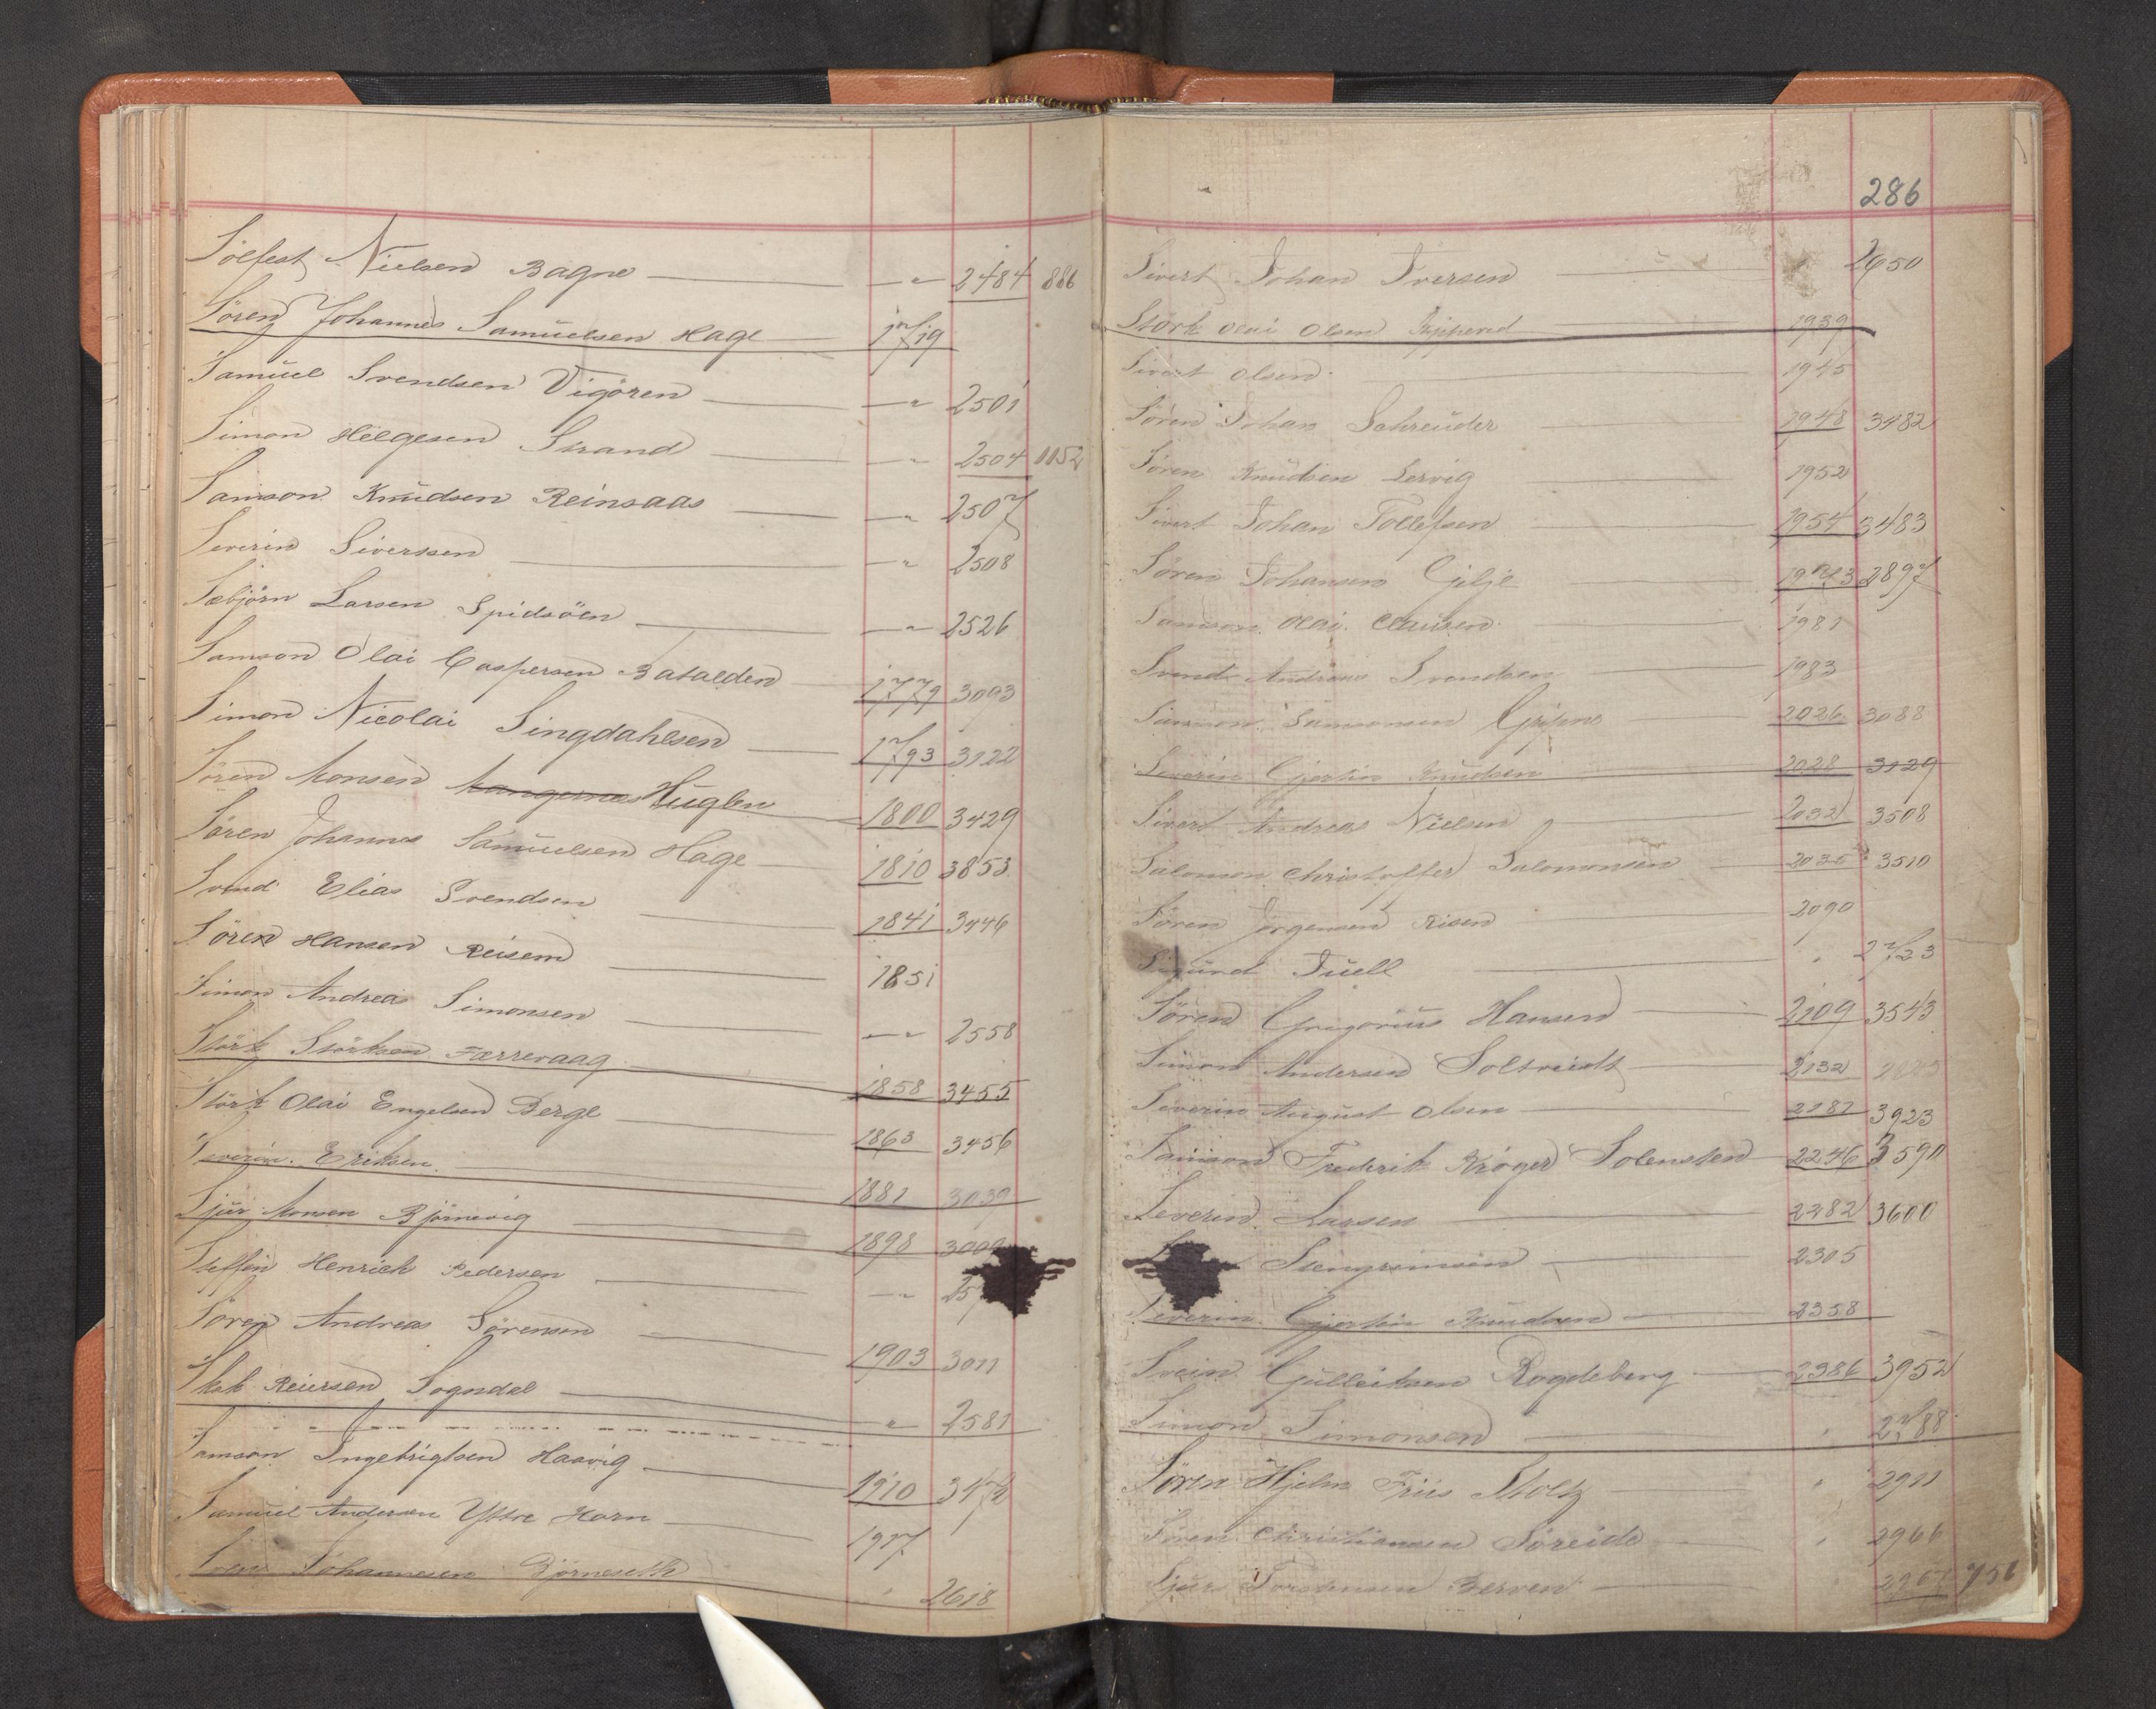 Sölfest Nielsen Bagne — " 2484 886
Sören Johannes Samuelsen Hage — 1719
Samuel Svendsen Vigören — " 2501
Simon Helgesen Strand — " 2504 1152
Samson Knudsen Reinsaas — " 2507
Severin Siverssen — " 2508
Sæbjörn Larsen Spidsöen — " 2526
Samson Olai Caspersen Batalden 1779 3093
Simon Nicolai Singdahlsen — 1793 3122
Sören Monsen Huglen 1800 3429
Sören Johannes Samuelsen Hage — 1810 3853
Svend Elias Svendsen — 1841 3446
Sören Hansen Reisem — 1851
Simon Andreas Simonsen — " 2558
Störk Störksen Færrevaag — 1858 3455
Störk Olai Engelsen Berge — 1863 3456
Severin Eriksen — 1881 3039
Sjur Monsen Björnevig — 1898 3009
Steffen Henrich Pedersen — " 25
Sören Andreas Sörensen — 1903 3011
Reiersen Sogndal — " 2581
Samson Ingebrigtsen Haavig — 1910 3472
Samuel Andersen Yttre Horn — 1917
Johannesen Björneseth " 2618
286
Sivert Johan Iversen — 2650
Störk Olai Olsen — 1939
Sivert Olsen — 1945
Sören Johan Schreuder — 1948 3482
Sören Knudsen Lervig — 1952
Sivert Johan Tollefsen — 1954 3483
Sören Johansen Gilje — 1973 2897
Samson Olai Clausen — 1981
Svend Andreas Svendsen — 1983
Samson Samsonsen — 2026 3088
Severin Gjertin Knudsen — 2028 3129
Sivert Andreas Nielsen — 2032 3508
Salomon Christoffer Salomonsen — 2035 3510
Sören Jörgensen Risen — 2090
Sigurd Juell — " 2723
Sören Gregorius Hansen — 2109 3543
Simon Andersen Soltvedt — 2132
Severin August Olsen — 2187 3923
Samson Frederik Kröger Solensten — 2246 3590
Severin Larsen — 2282 3600
Stengrimsen — 2305
Severin Gjertin Knudsen — 2358
Svein Gulleiksen Rogdeberg — 2386 3952
Simon Simonsen — " 2788
Sören Hjelm Friis Stoltz — " 2911
Sören Christiansen Söreide — " 2966
Sjur Torstensen Berven — 2967 756